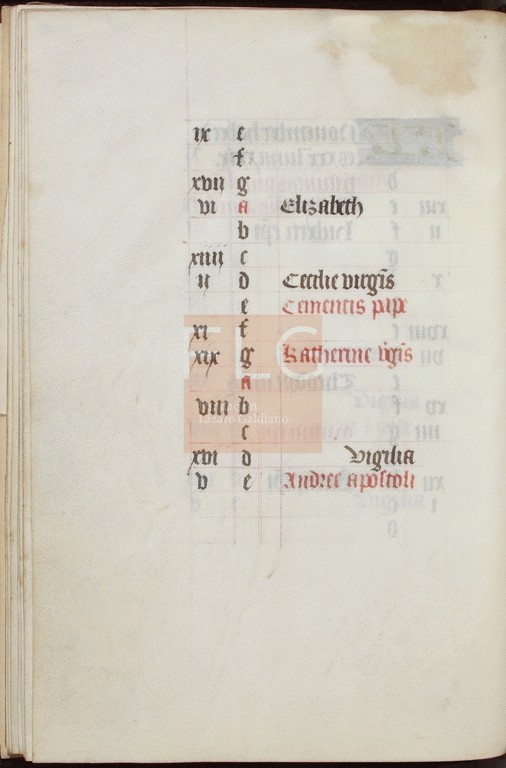 ix e
f
xvii g
vi a Elizabeth
b
xiiii c
ii d Cecilie virgis
e Cementis pape
xi f
xix g Katherine v̄gis
a
viii b
c
xvi d Vigilia
v e Andree apostoli
FLC
Lázaro Galdiano